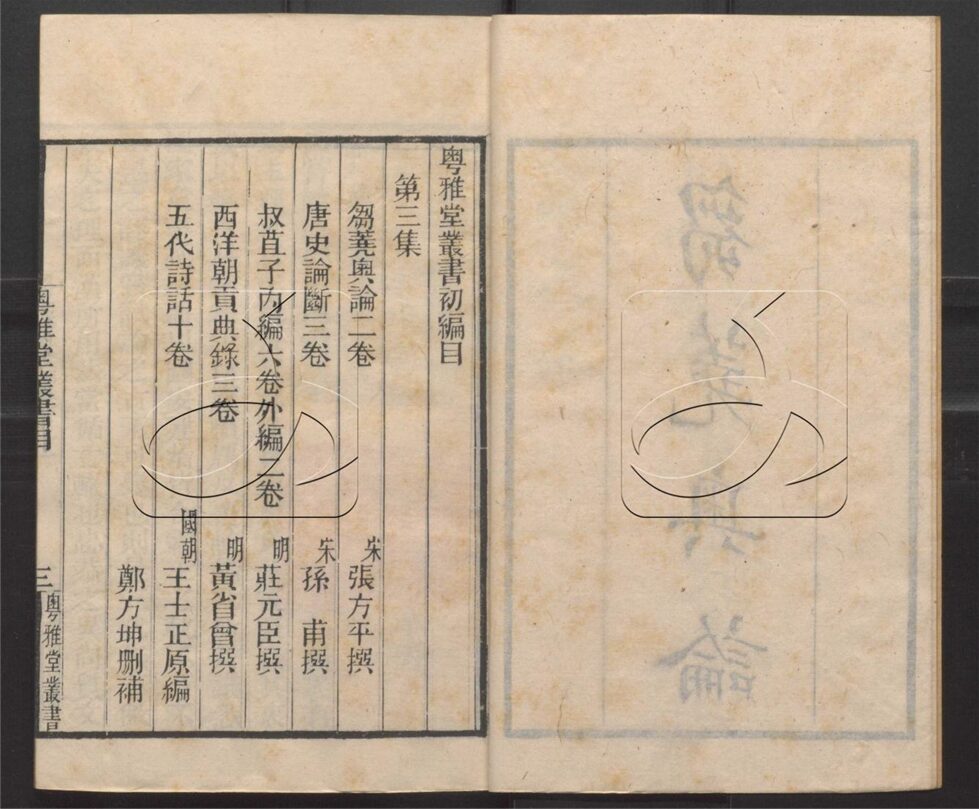 粵雅堂叢書初編目
第三集
芻蕘輿論二卷 宋 張方平撰
唐史論斷三卷 宋 孫甫撰
叔苴子內編六卷外編二卷 明 莊元臣撰
西洋朝貢典錄三卷 明 黃省曾撰
五代詩話十卷 國朝 王士正原編
鄭方坤刪補
粵雅堂叢書目
三
粵雅堂叢書
芻蕘輿論